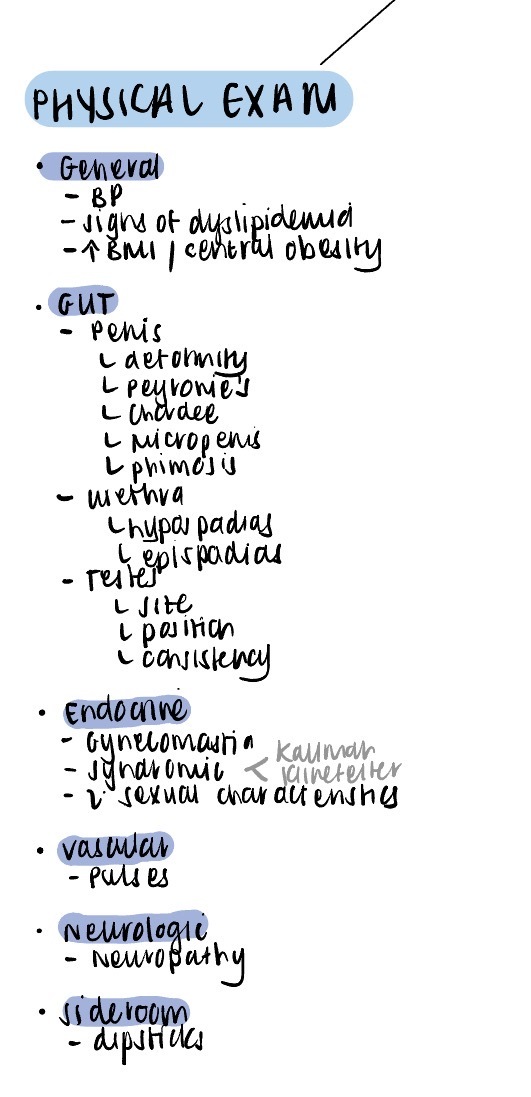 PHYSICAL EXAM
• General
- BP
- signs of dyslipidemia
- ↑ BMI / central obesity
• GUT
- Penis
└ deformity
└ peyronie's
└ chordee
└ micropenis
└ phimosis
- urethra
└ hypospadias
└ epispadias
- Testes
└ site
└ position
└ consistency
• Endocrine
- Gynecomastia
- syndromic < Kallman
klinefelter
- 2° sexual characteristics
• vascular
- pulses
• Neurologic
- Neuropathy
• sideroom
- dipsticks